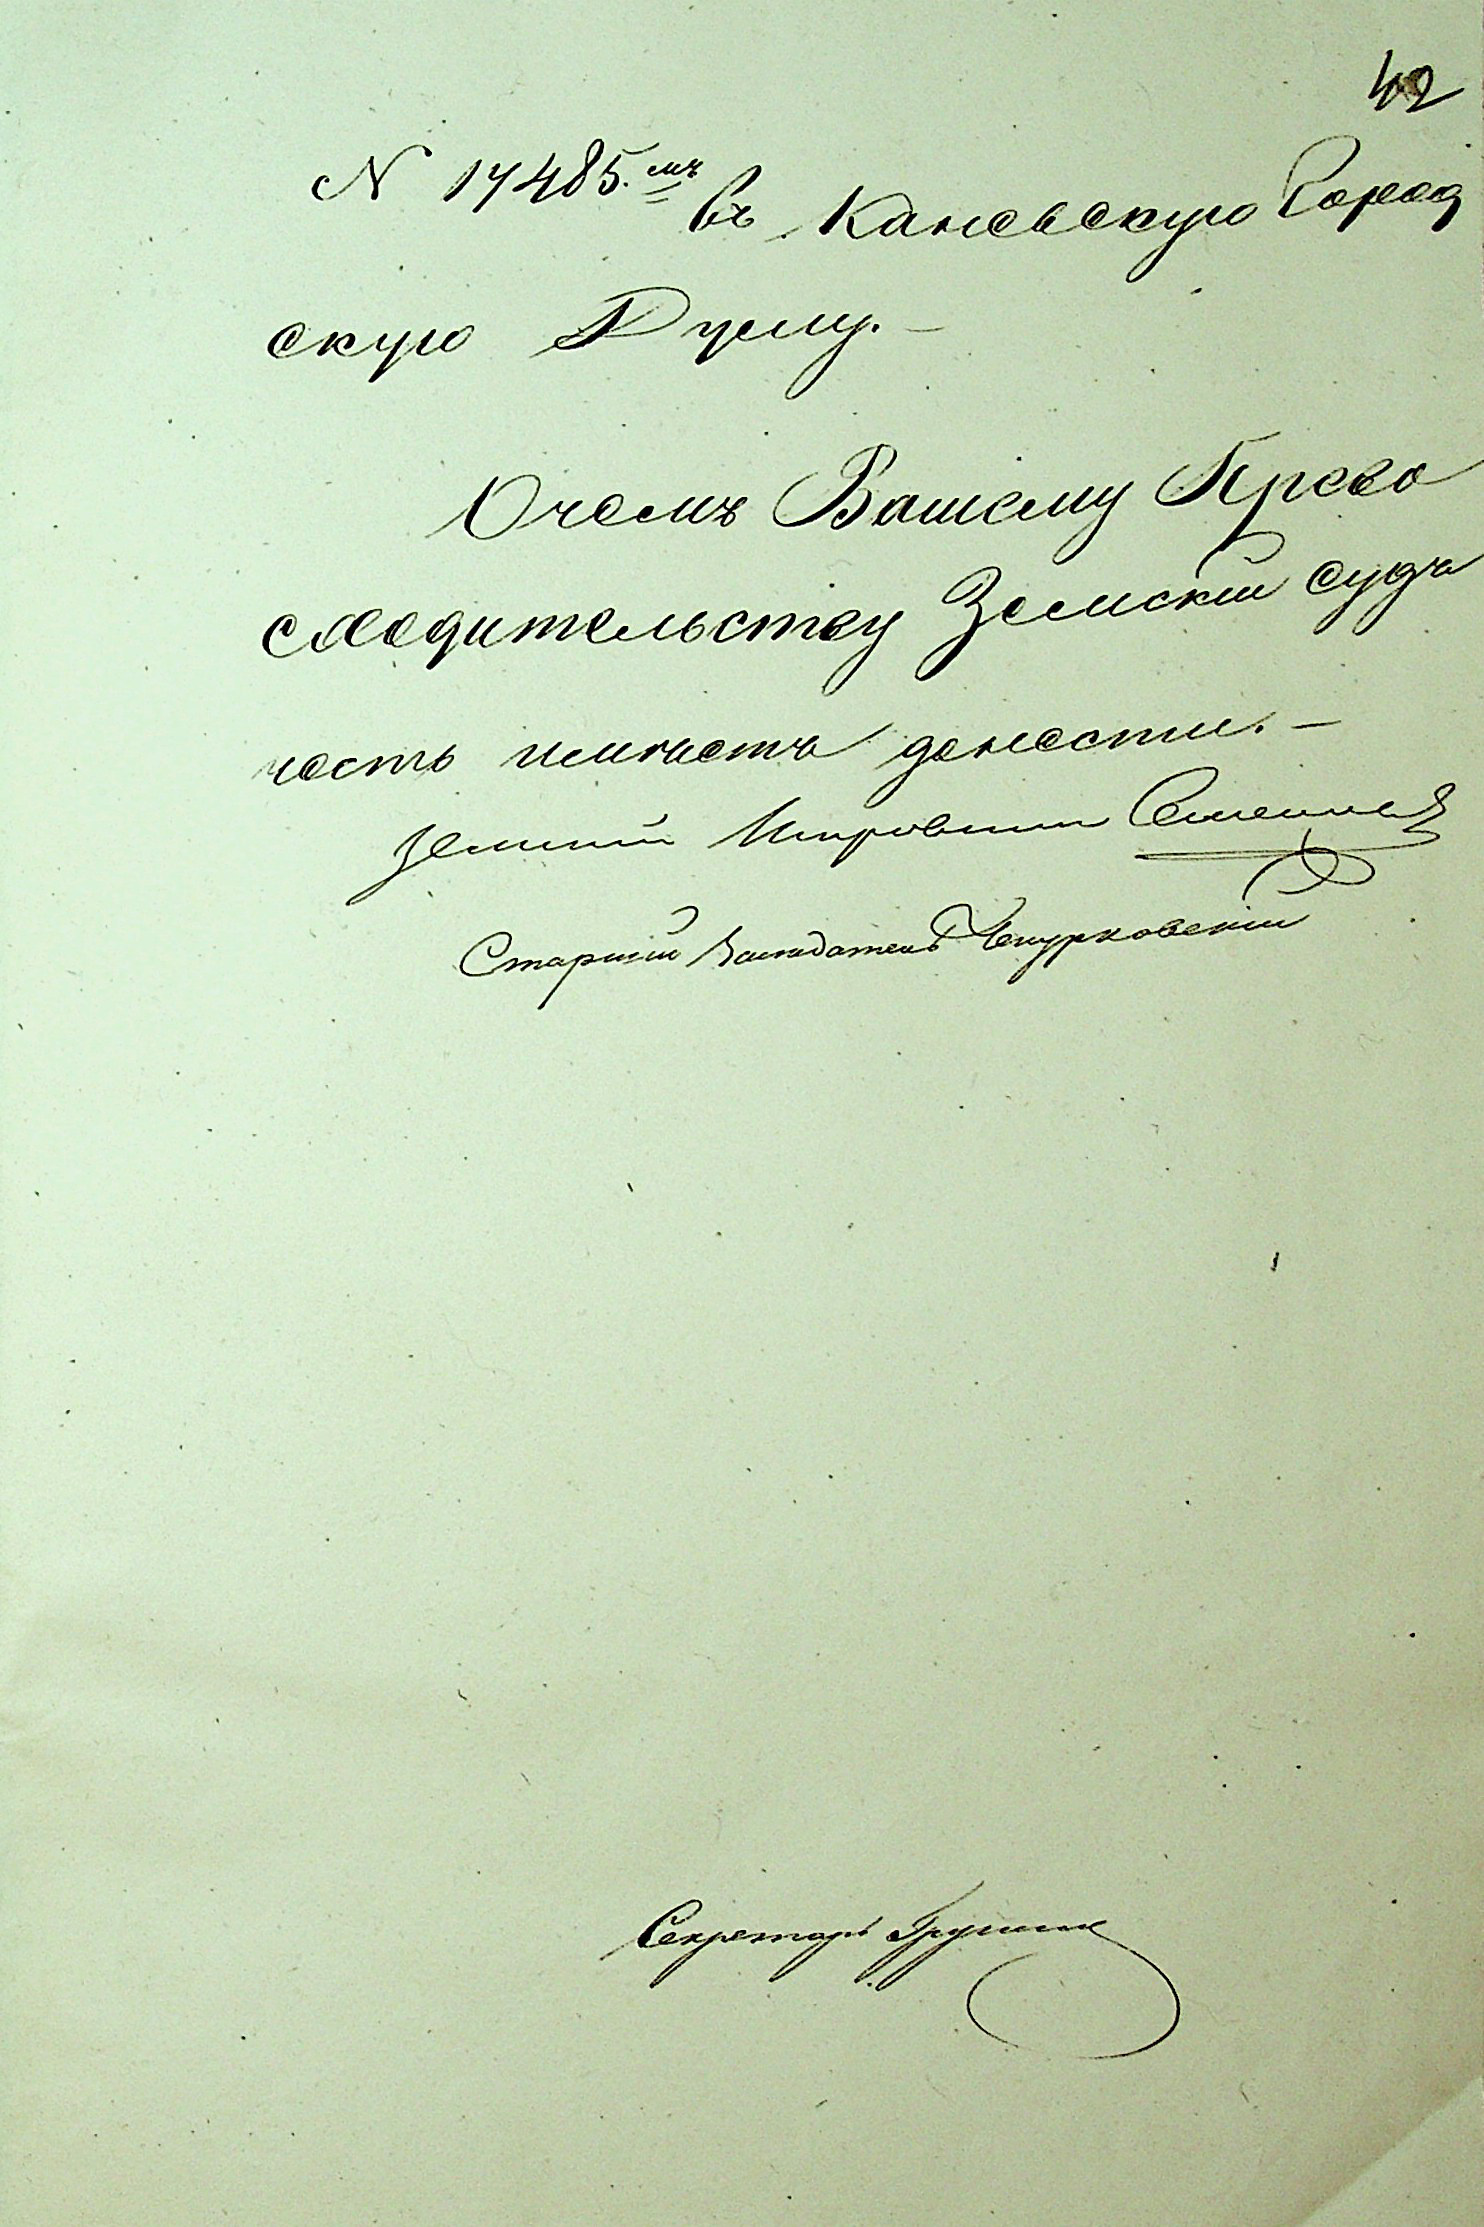 42
№ 17485.мъ въ Каневскую Город
скую Думу. —
О чемъ Вашему Прево
сходительству Земскій судъ
честь имѣетъ донести. —
Земскій Исправникъ
Старшій Засѣдатель Чепурковскій
Секретарь